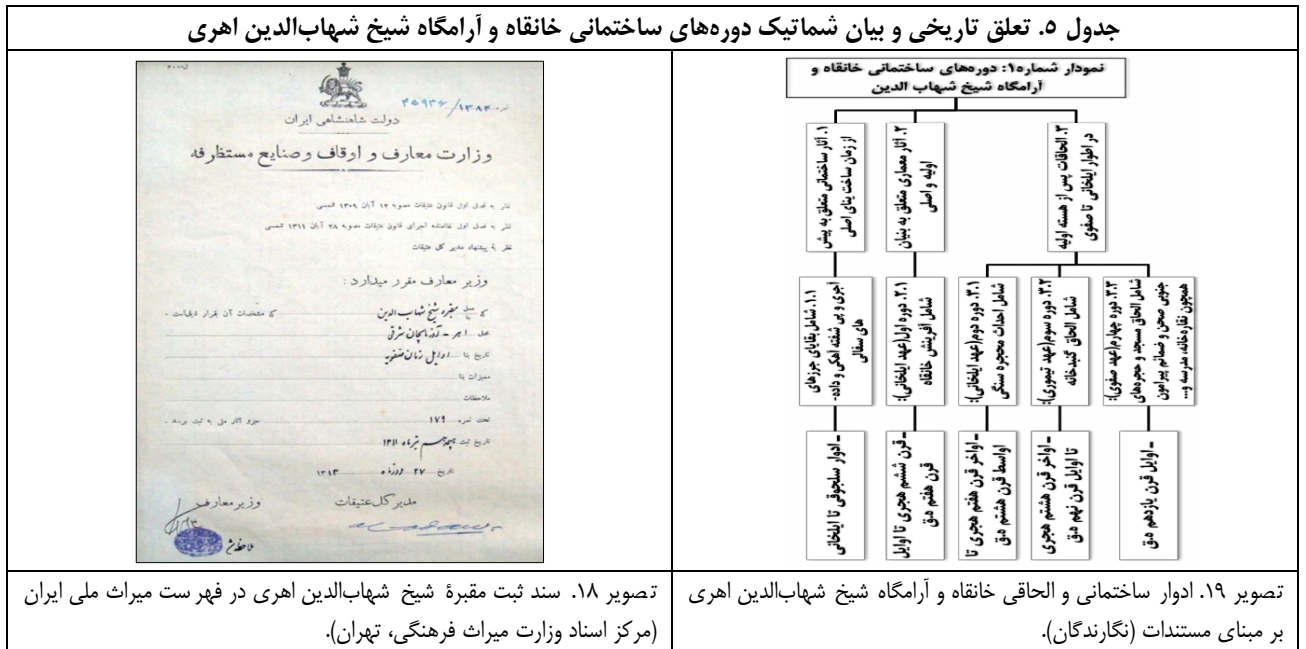 جدول ۵. تعلق تاریخی و بیان شماتیک دوره‌های ساختمانی خانقاه و آرامگاه شیخ شهاب‌الدین اهری
نمودار شماره۱: دوره‌های ساختمانی خانقاه و
آرامگاه شیخ شهاب الدین
۱. آثار ساختمانی متعلق به پیش
از زمان ساخت بنای اصلی
۲. آثار معماری متعلق به بنیان
اولیه و اصلی
۳. الحاقات پس از هسته اولیه
در اطوار ایلخانی تا صفوی
۱.۱. شامل بقایای جرزهای
آجری و پی شفته آهکی و داده-
های سفالی
۲.۱. دوره اول(عهد ایلخانی):
شامل آفرینش خانقاه
۳.۱. دوره دوم(عهد ایلخانی):
شامل احداث محجره سنگی
۳.۲. دوره سوم(عهد تیموری):
شامل الحاق گنبدخانه
۳.۳. دوره چهارم(عهد صفوی):
شامل الحاق مسجد و حجره‌های
جنوبی صحن و ضمائم پیرامون
همچون نقاره‌خانه، مدرسه و...
ـ ادوار سلجوقی تا ایلخانی
ـ قرن ششم هجری تا اوایل
قرن هفتم ه.ق
ـ اواخر قرن هفتم هجری تا
اواسط قرن هشتم ه.ق
ـ اواخر قرن هشتم هجری
تا اوایل قرن نهم ه.ق
ـ اوایل قرن یازدهم ه.ق
دولت شاهنشاهی ایران
وزارت معارف و اوقاف و صنایع مستظرفه
نظر به فصل اول قانون عتیقات مصوبه ۱۲ آبان ۱۳۰۹ شمسی
نظر به فصل اول نظامنامه اجرای قانون عتیقات مصوبه ۲۸ آبان ۱۳۱۱ شمسی
نظر به پیشنهاد مدیر کل عتیقات
وزیر معارف مقرر میدارد :
که مقبره شیخ شهاب الدین که مشخصات آن بقرار ذیل است .
محل اهر ـ آذربایجان شرقی
تاریخ بنا اوایل زمان صفویه
ممیزات بنا
ملاحظات
تحت نمره ۱۷۹ جزو آثار ملی به ثبت برسد .
تاریخ ثبت تیرماه ۱۳۱۱
تاریخ ۲۷ ۱۳۱۳
مدیر کل عتیقات
وزیر معارف
تصویر ۱۹. ادوار ساختمانی و الحاقی خانقاه و آرامگاه شیخ شهاب‌الدین اهری
بر مبنای مستندات (نگارندگان).
تصویر ۱۸. سند ثبت مقبرۀ شیخ شهاب‌الدین اهری در فهرست میراث ملی ایران
(مرکز اسناد وزارت میراث فرهنگی، تهران).